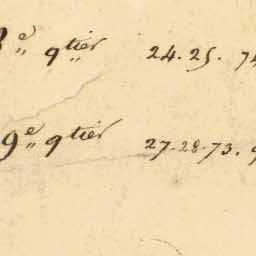 8e qtier 24. 25. 74
9e qtier 27. 28. 73. 9